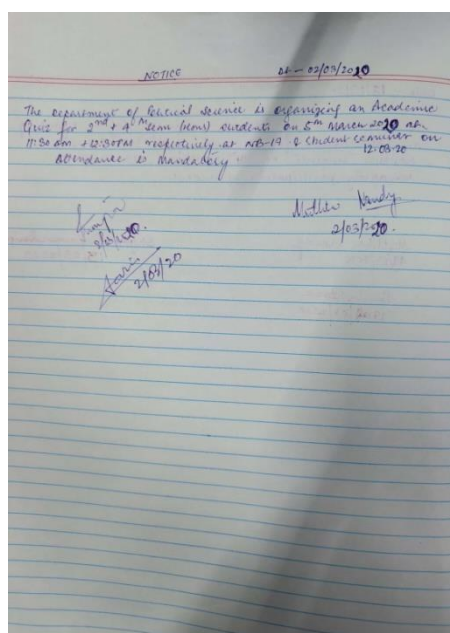 NOTICE Dt - 02/03/2020
The department of Political Science is organizing an Academic
Quiz for 2nd + 4th Sem (Hons) students on 5th March 2020 at
11:30 Am + 12:30 PM respectively at NB-19 & Student Seminar on
12.03.20
Attendance is Mandatory.
2/03/2020.
2/03/2020.
2/03/20